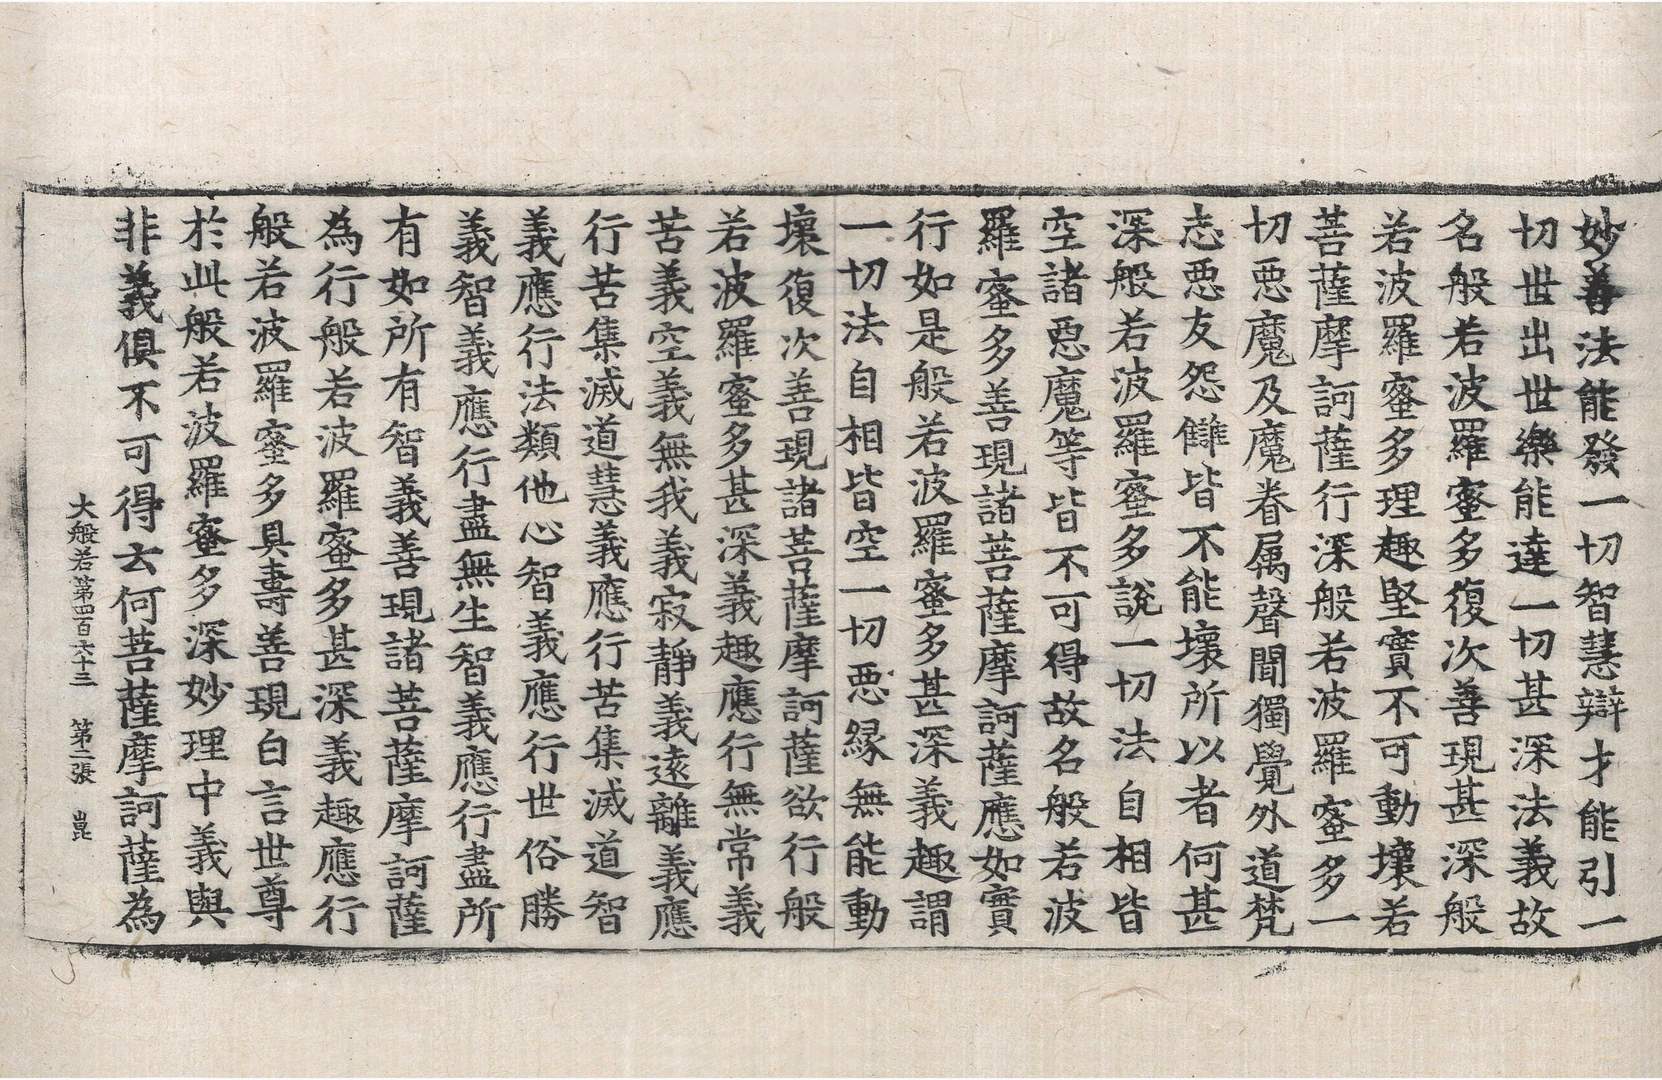 妙善法能發一切智慧辯才能引一
切世出世樂能達一切甚深法義故
名般若波羅蜜多復次善現甚深般
若波羅蜜多理趣堅實不可動壞若
菩薩摩訶薩行深般若波羅蜜多一
切惡魔及魔眷属聲聞獨覺外道梵
志惡友怨讎皆不能壞所以者何甚
深般若波羅蜜多說一切法自相皆
空諸惡魔等皆不可得故名般若波
羅蜜多善現諸菩薩摩訶薩應如實
行如是般若波羅蜜多甚深義趣謂
一切法自相皆空一切惡緣無能動
壞復次善現諸菩薩摩訶薩欲行般
若波羅蜜多甚深義趣應行無常義
苦義空義無我義寂靜義遠離義應
行苦集滅道慧義應行苦集滅道智
義應行法類他心智義應行世俗勝
義智義應行盡無生智義應行盡所
有如所有智義善現諸菩薩摩訶薩
為行般若波羅蜜多甚深義趣應行
般若波羅蜜多具壽善現白言世尊
於此般若波羅蜜多深妙理中義與
非義俱不可得云何菩薩摩訶薩為
大般若第四百六十三 第二張 崑